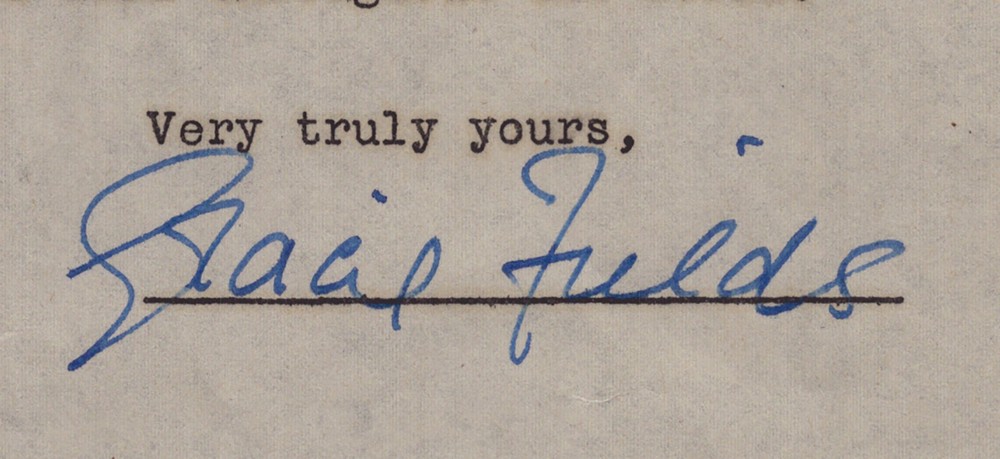 Very truly yours,
Gracie Fields